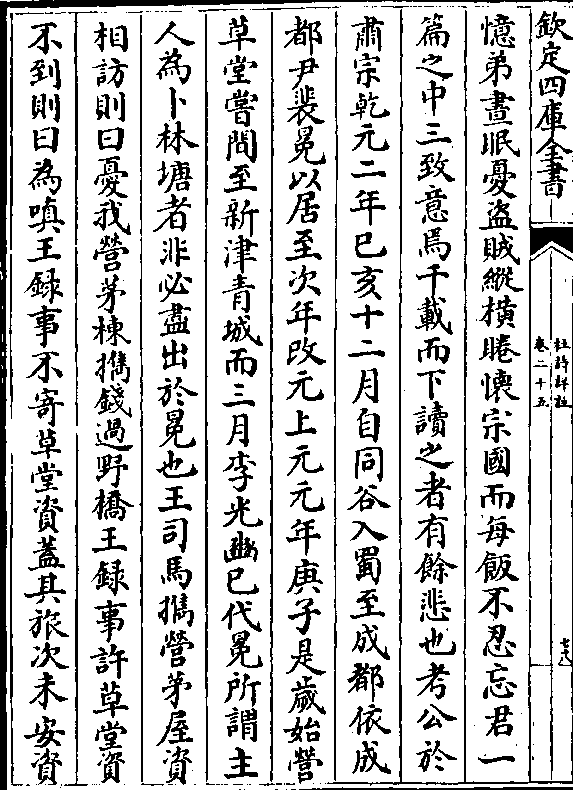 欽定四庫全書
杜詩詳註
卷二十五
七十八
憶弟晝眠憂盜賊縱橫睠懷宗國而每飯不忍忘君一
篇之中三致意焉千載而下讀之者有餘悲也考公於
肅宗乾元二年已亥十二月自同谷入蜀至成都依成
都尹裴冕以居至次年改元上元元年庚子是歲始營
草堂嘗間至新津青城而三月李光幽已代冕所謂主
人為卜林塘者非必盡出於冕也王司馬携營茅屋資
相訪則曰憂我營茅棟携錢過野橋王録事許草堂資
不到則曰為嗔王録事不寄草堂資蓋其旅次未安資